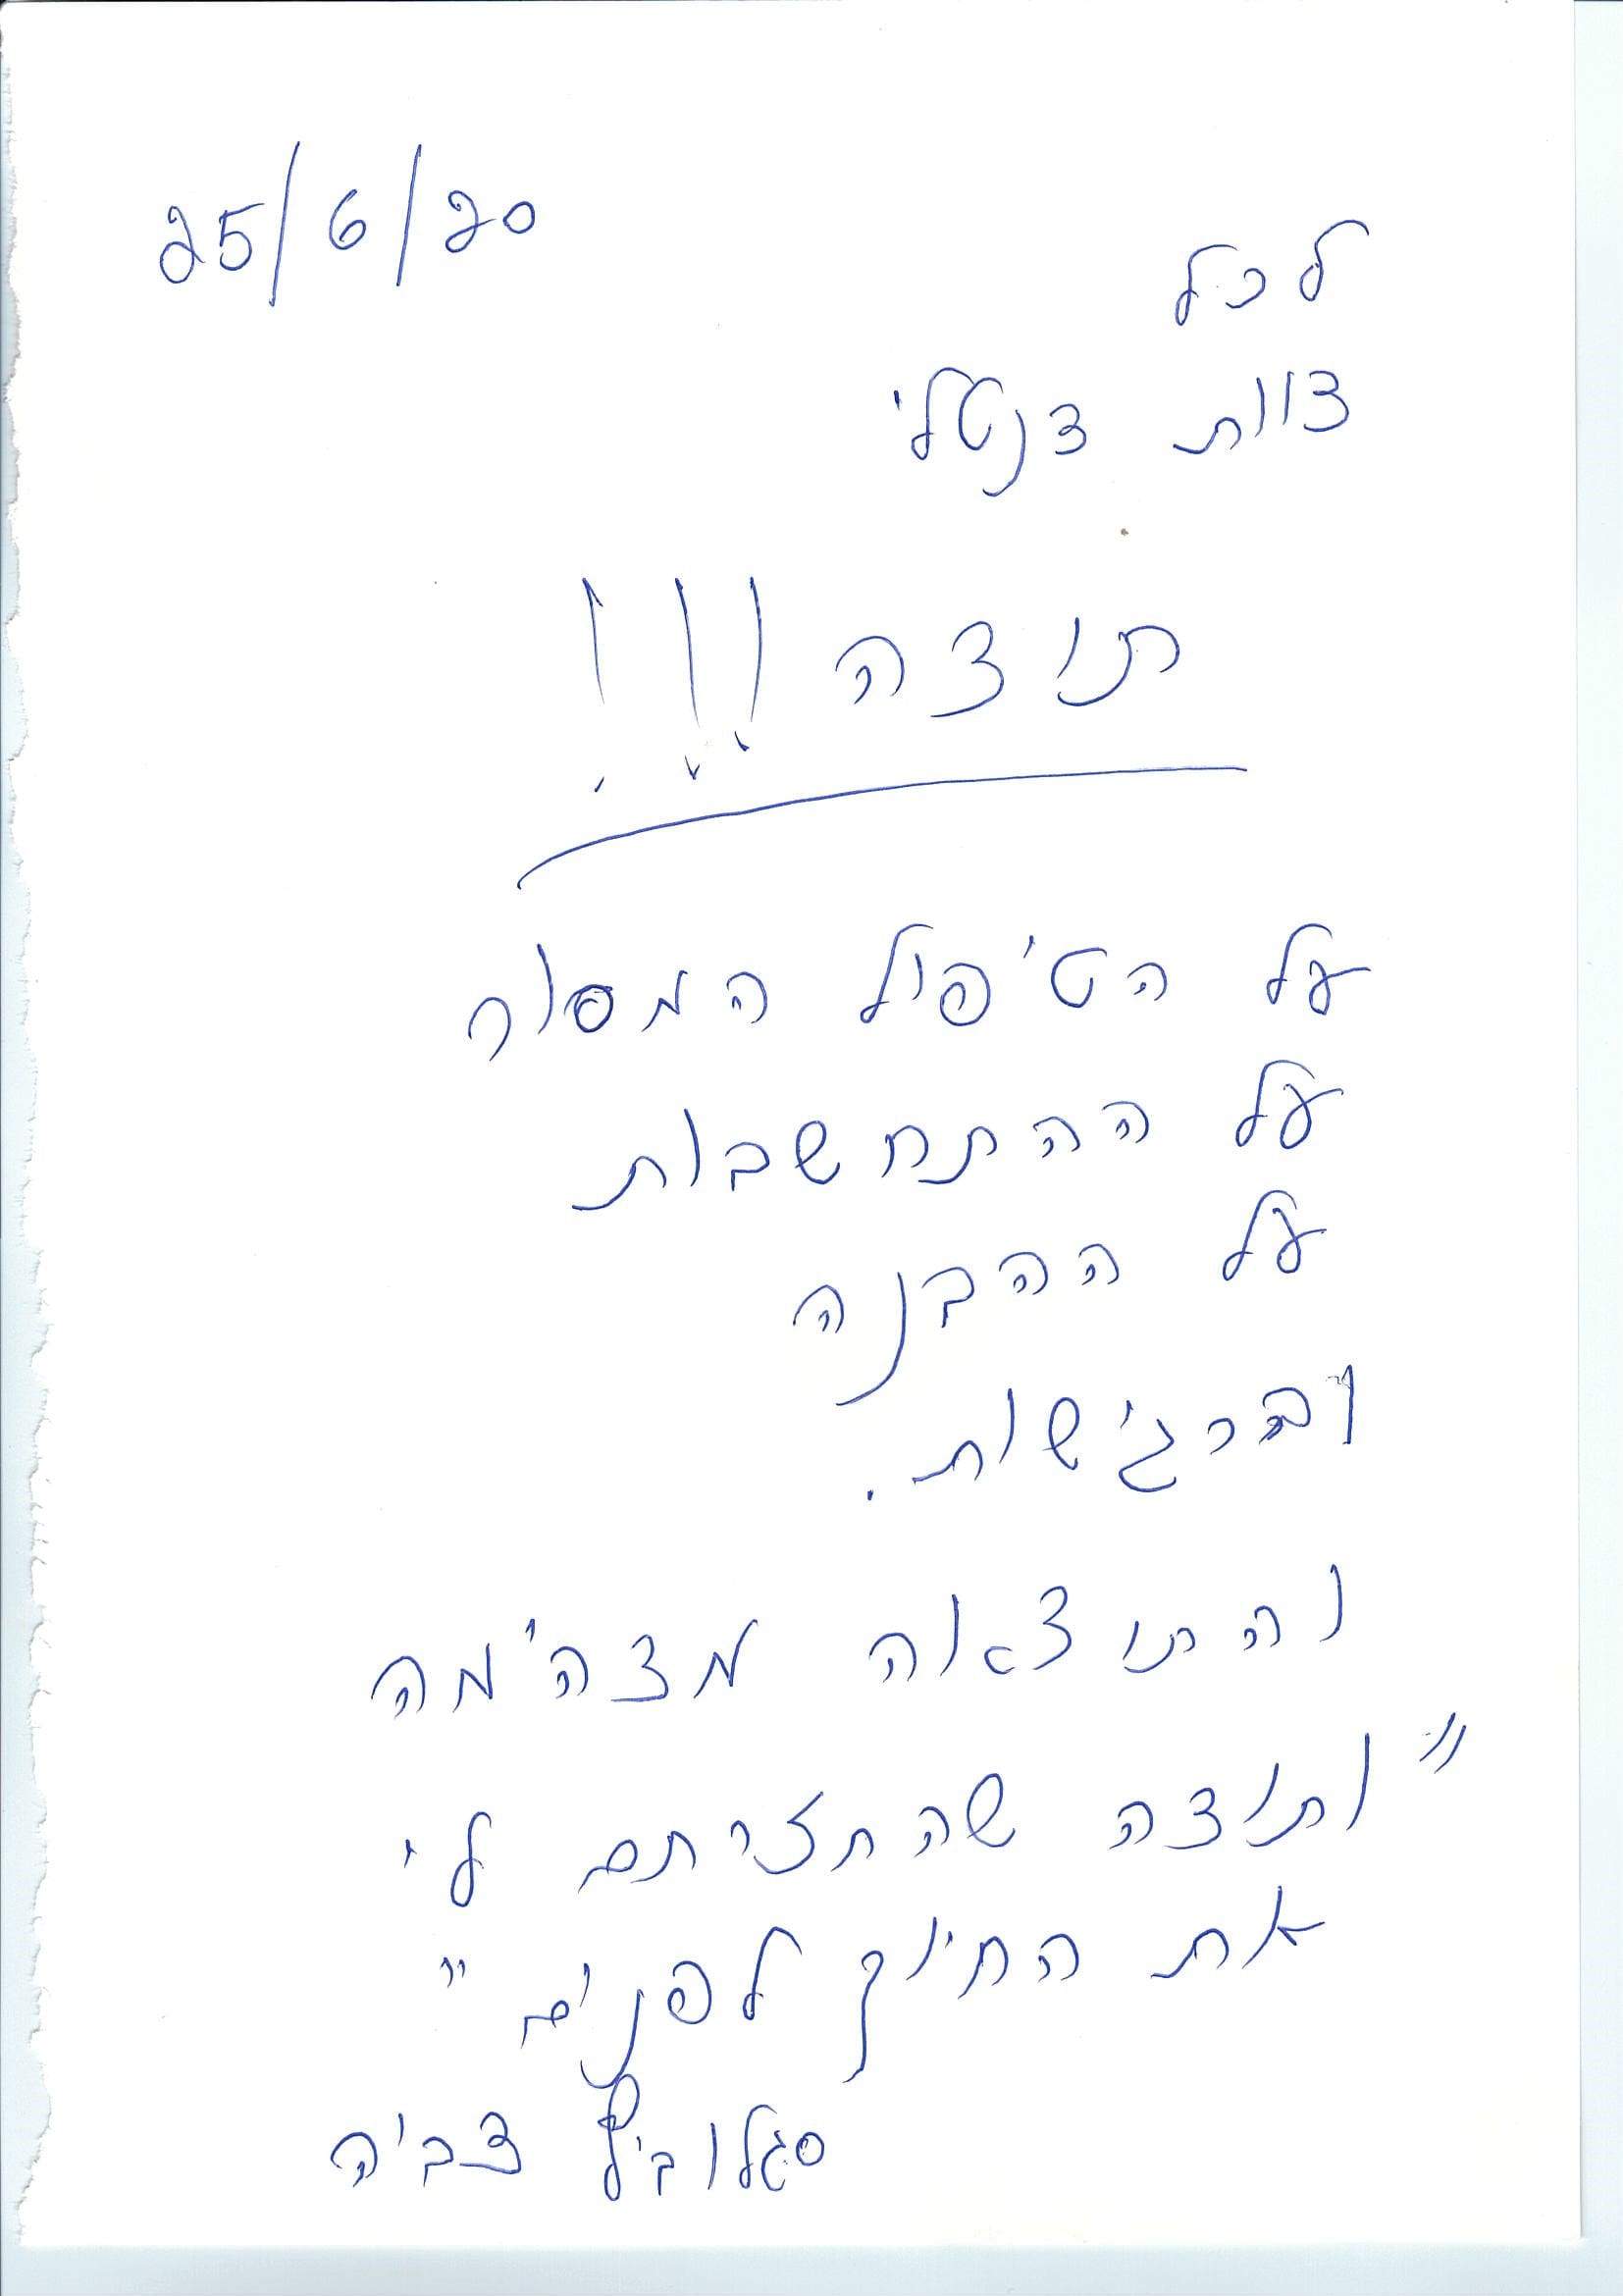 25/6/20
לכל
צוות דנטלי
תודה!!!
על הטיפול המסור
על ההתחשבות
על ההבנה
וברגישות.
והתוצאה מדהימה
"ותודה שהחזרתם לי
את החיוך לפנים"
סגלוביץ צביה